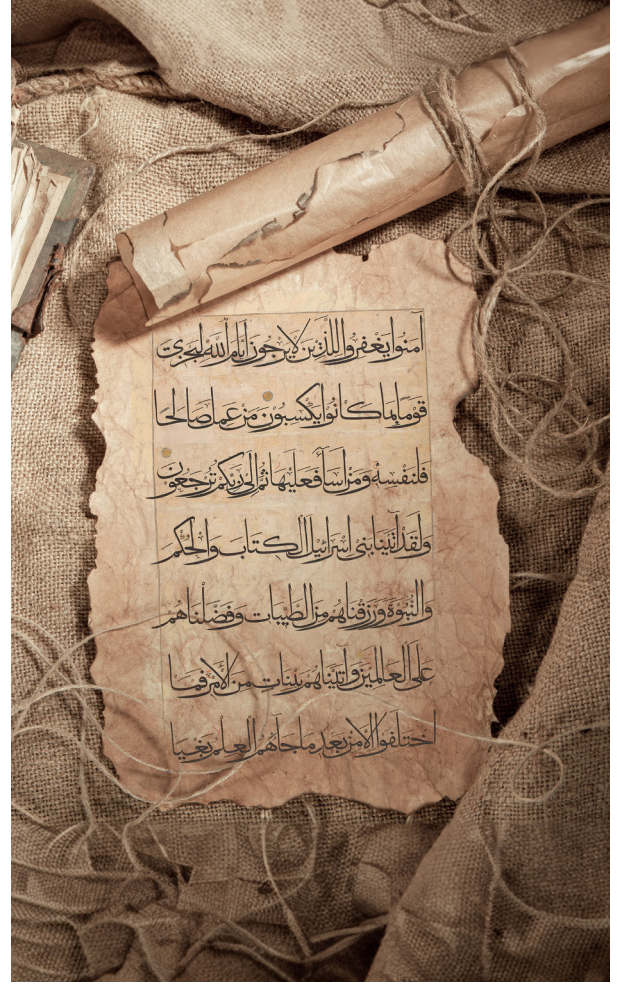 آمنوا يغفروا للذين لا يرجون أيام الله ليجزي
قوما بما كانوا يكسبون من عمل صالحا
فلنفسه ومن أسآ فعليها ثم إلى ربكم ترجعون
ولقد آتينا بني إسرائيل الكتاب والحكم
والنبوة ورزقناهم من الطيبات وفضلناهم
على العالمين وآتيناهم بينات من الأمر فما
اختلفوا إلا من بعد ما جآءهم العلم بغيا